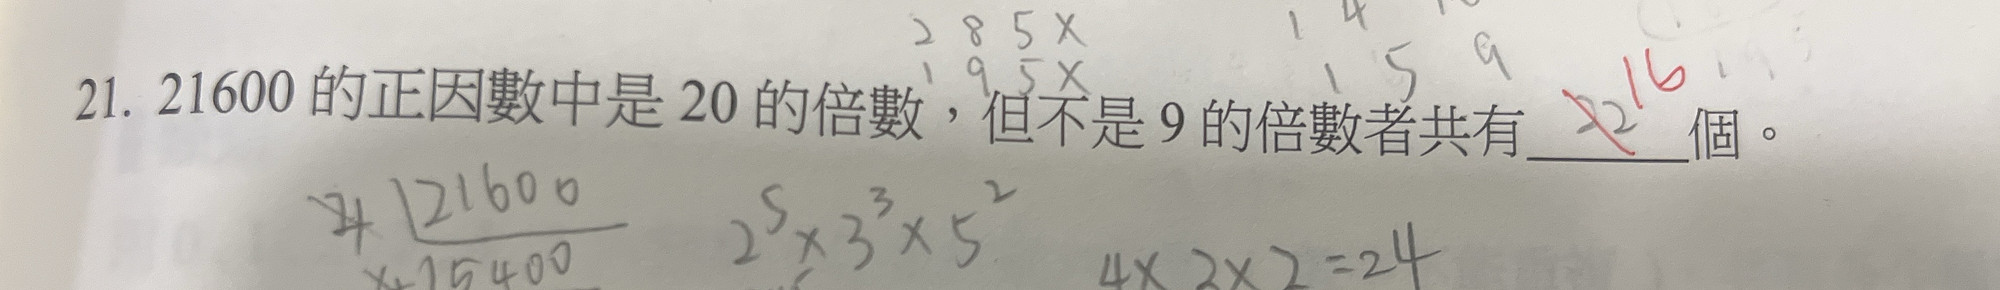 2 8 5 X
1 9 5 X
1 4
1 5 9
21. 21600 的正因數中是 20 的倍數，但不是 9 的倍數者共有 22 16 個。
4 21600
5400
2^5 × 3^3 × 5^2
4 × 2 × 2 = 24